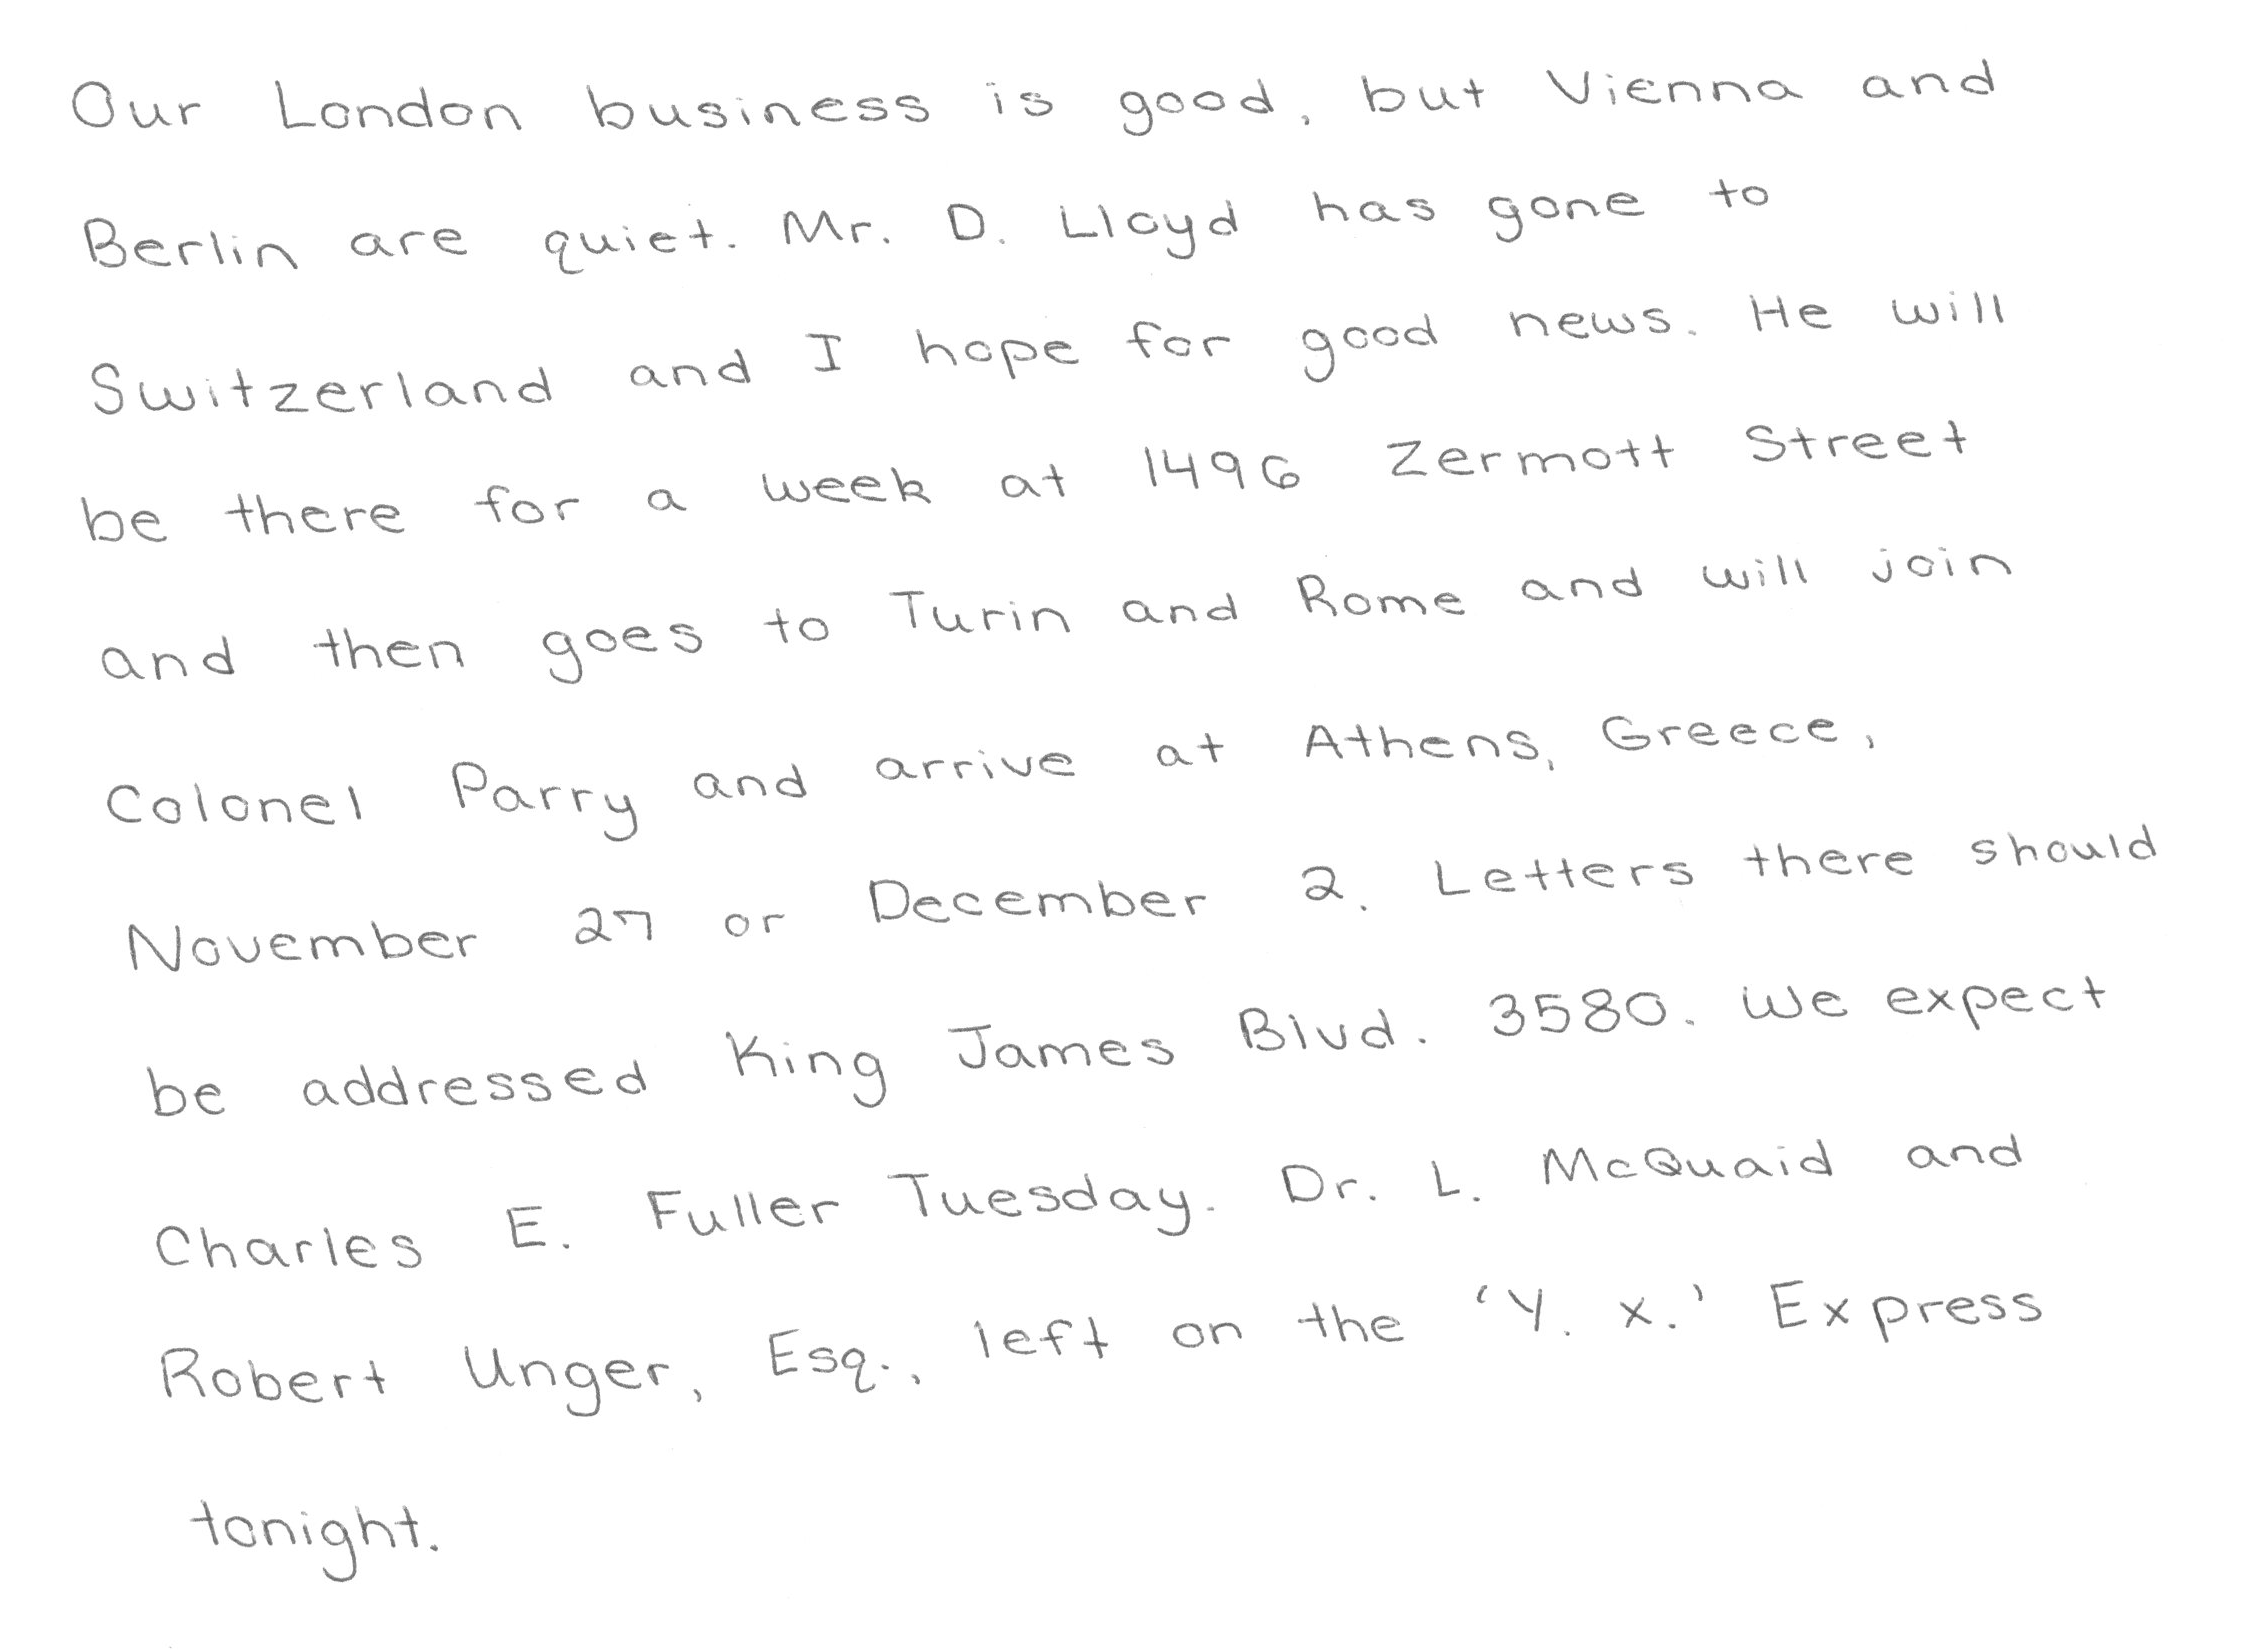 Our London business is good, but Vienna and
Berlin are quiet. Mr. D. Lloyd has gone to
Switzerland and I hope for good news. He will
be there for a week at 1496 Zermott Street
and then goes to Turin and Rome and will join
Colonel Parry and arrive at Athens, Greece,
November 27 or December 2. Letters there should
be addressed King James Blvd. 3580. We expect
Charles E. Fuller Tuesday. Dr. L. McQuaid and
Robert Unger, Esq., left on the 'Y. X.' Express
tonight.